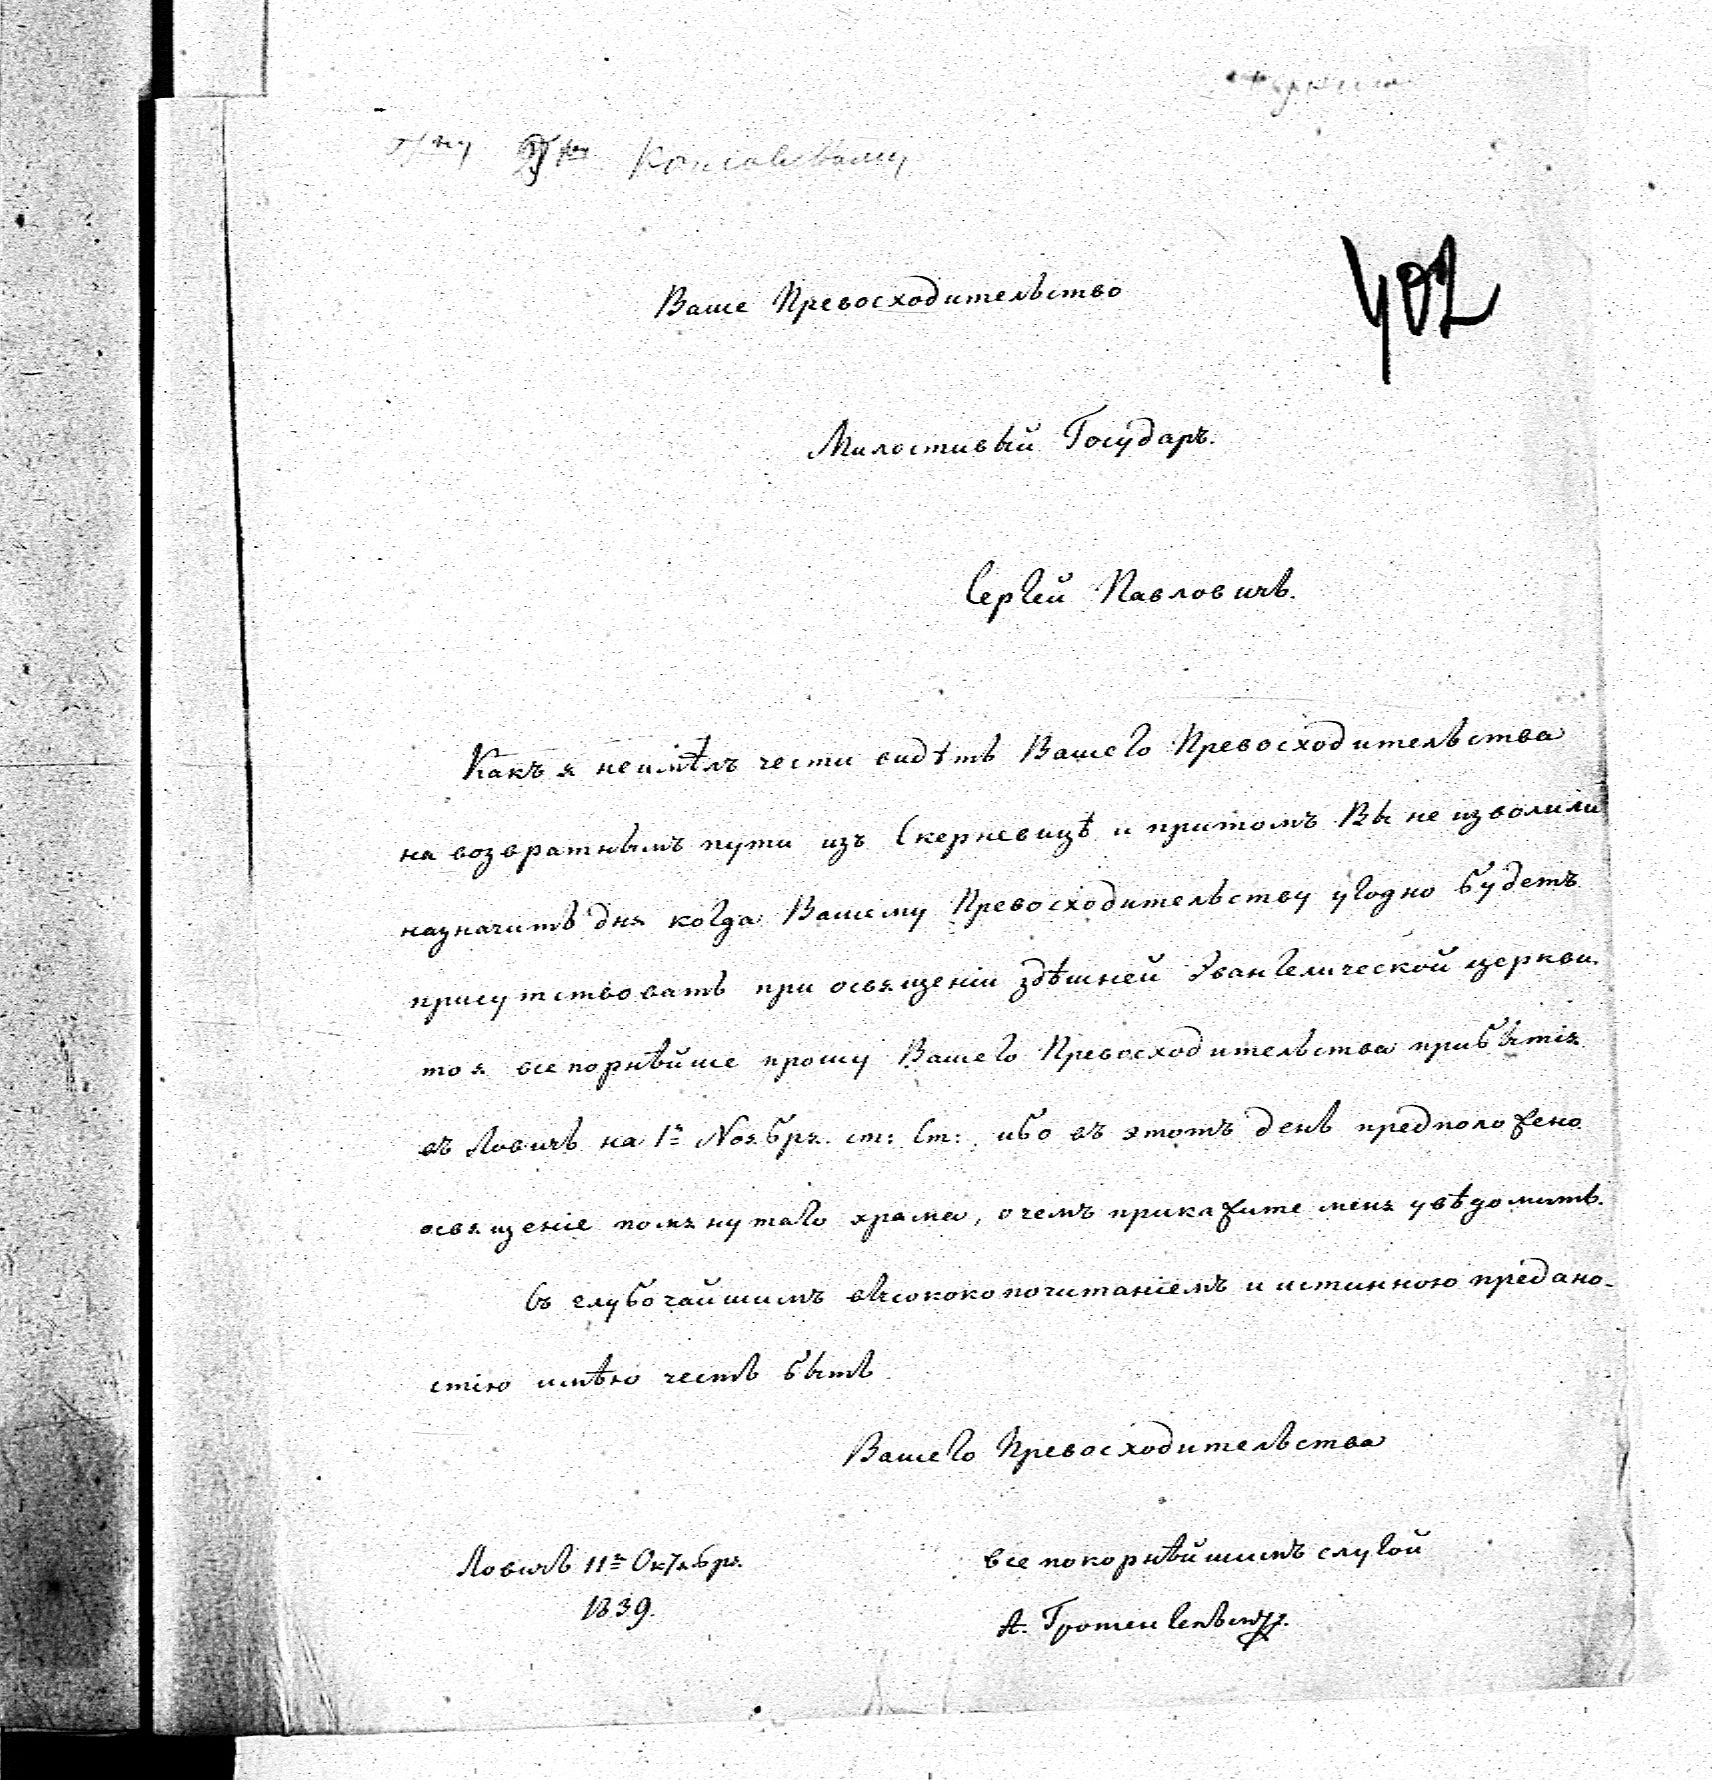 402
Ваше Превосходительство
Милостивый Государь.
Сергей Павловичь.
Какъ я неимѣлъ чести видѣть Вашего Превосходительства
на возвратнымъ пути изъ Скерневицѣ и притомъ Вы не изволили
назначить дня когда Вашему Превосходительству угодно будетъ
присутствовать при освященіи здѣшней Эвангелической церкви.
то я всепорнѣйше прошу Вашего Превосходительства прибытія
въ Ловичь на 1е Ноября ст: Ст: ибо въ этотъ день предположено
освященіе помянутаго храма, о чемъ прикажите меня увѣдомить.
Съ глубочайшимъ высококопочитаніемъ и истинною предано-
стію имѣю честь быть
Вашего Превосходительства
Ловичь 11е Октября.
1839.
всепокорнѣйшимъ слугой
А.